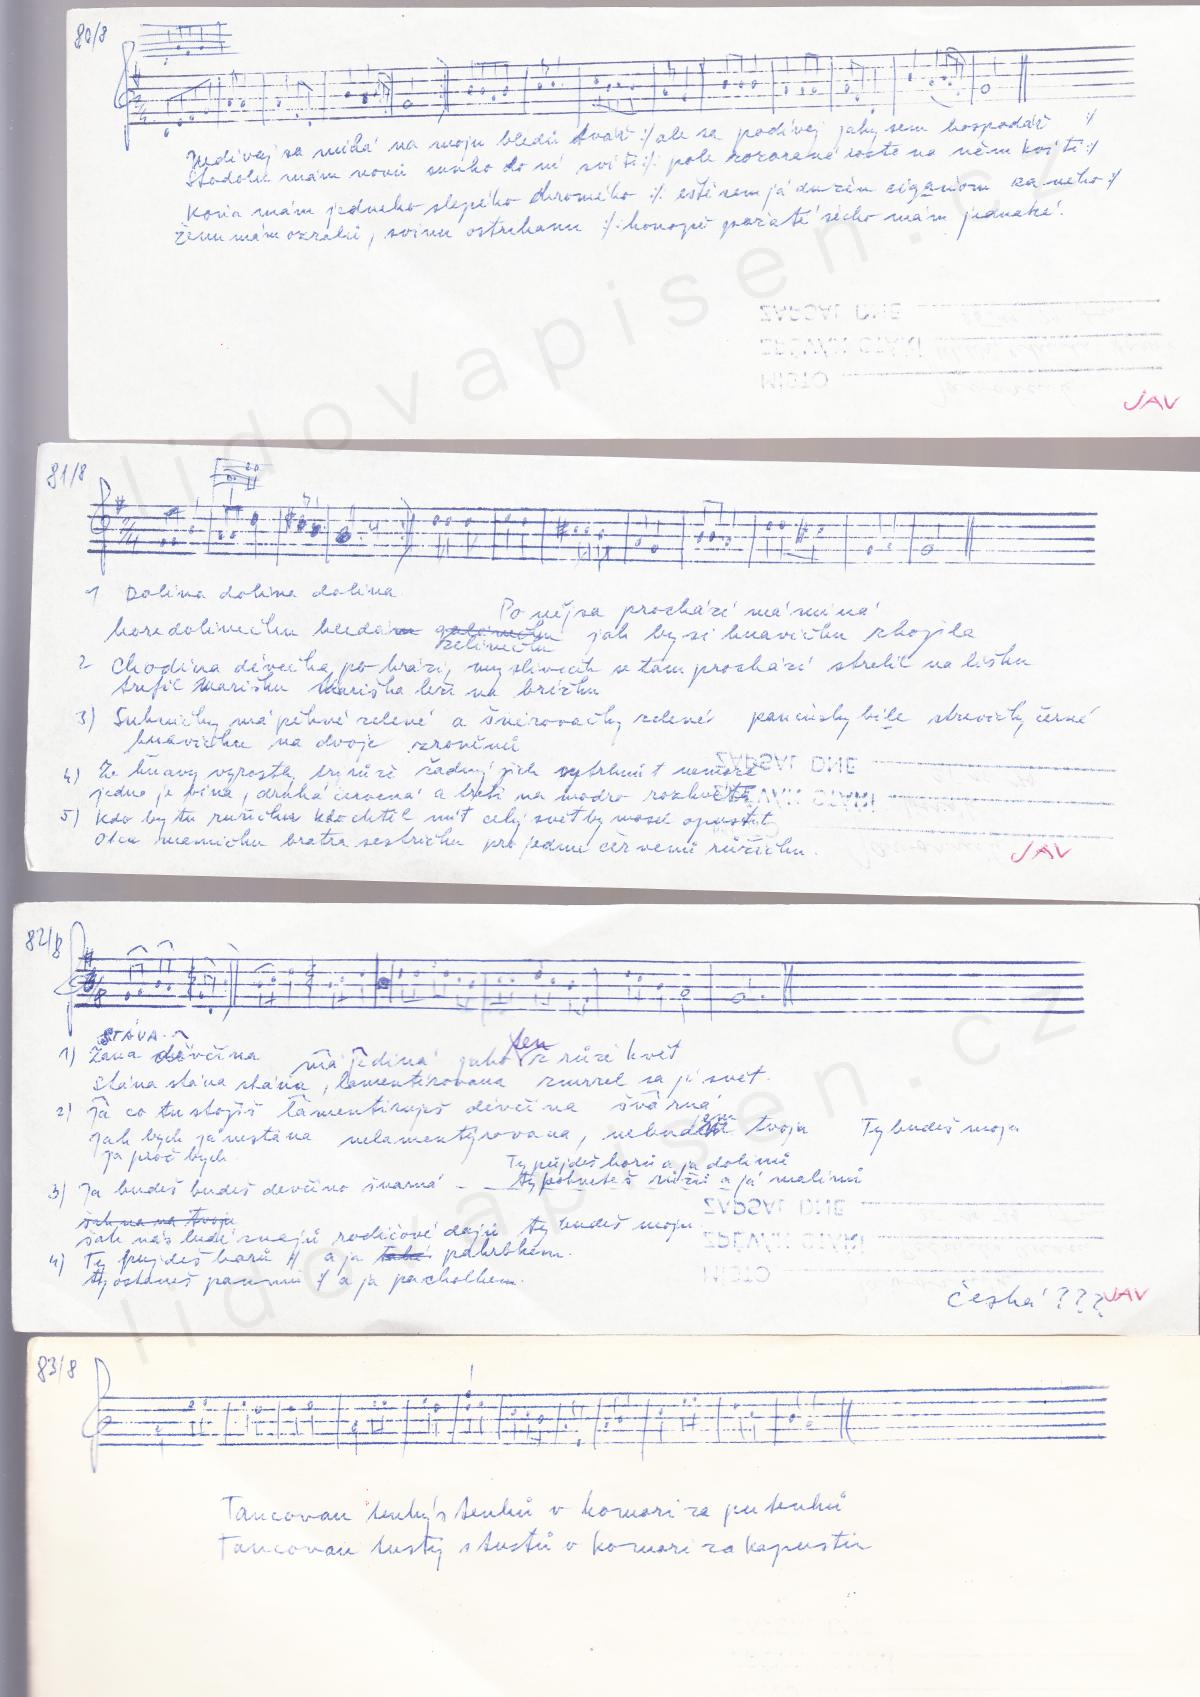 80/8
Nedívaj sa milá na moju bledú tvář :/ ale sa podívej jaký sem hospodář :/
Stodolu mám novú sunko do ní svítí :/: pole rozorané sosto na něm kvítí :/
Koňa mám jedneho slepého chromého :/: eště sem já dužen cigánom za neho :/
ženu mám ozralú, svinu ostrhanu :/:
JAV
81/8
1 Dolina dolina dolina
Po nější prochází má milá
hore dolinečku hledá zelinečku jak by si hlavičku zhojila
2 Chodila děvečka po hrázi, mysliveček se tam prochází střelil na lišku
trefil Marišku Mariška leží na brížku
3) Sukničky má pěkné zelené a šněrovačky zelené pančušky bíle střevíčky černé
hlavičku na dvoje
4) Ze hlavy vyrostly try růže žádný jich vytrhnút nemože
jedna je bílá, druhá červená a třetí na modro rozkvétá
5) Kdo by tu ružičku kdo chtěl mít celý svět by mosel opustit
Otca mamičku bratra sestričku pro jednu červenú růžičku.
JAV
82/8
STÁVA
1) Žala děvčina má jediná jako ten z růže květ
stála stála stála, lamentirovala zmrzel sa jí svět.
2) Ja co tu stojíš lamentiruješ děvčina švárná
jak bych já nestála nelamentýrovala, nebudem twoja Ty budeš moja
Ja proč bych
3) Ja budeš budeš děvčino švarná - Ty půjdeš horú a já dolinú
ty pokveteš růžú a já malinú
šak nás ludé znajú rodičové dajú ty budeš moju
4) Ty pujdeš harú :/ a ja pahrbkem.
ty ostaneš pannú :/ a ja pacholkem.
Česká ???
JAV
83/8
Tancovau tenký s tenkú v komori za putenkú
Tancovau tustý s tustú v komori za kapustú
ZAPSAL DNE
ZPÍVÁN OZNÁM
MÍSTO
lidovapisen.cz